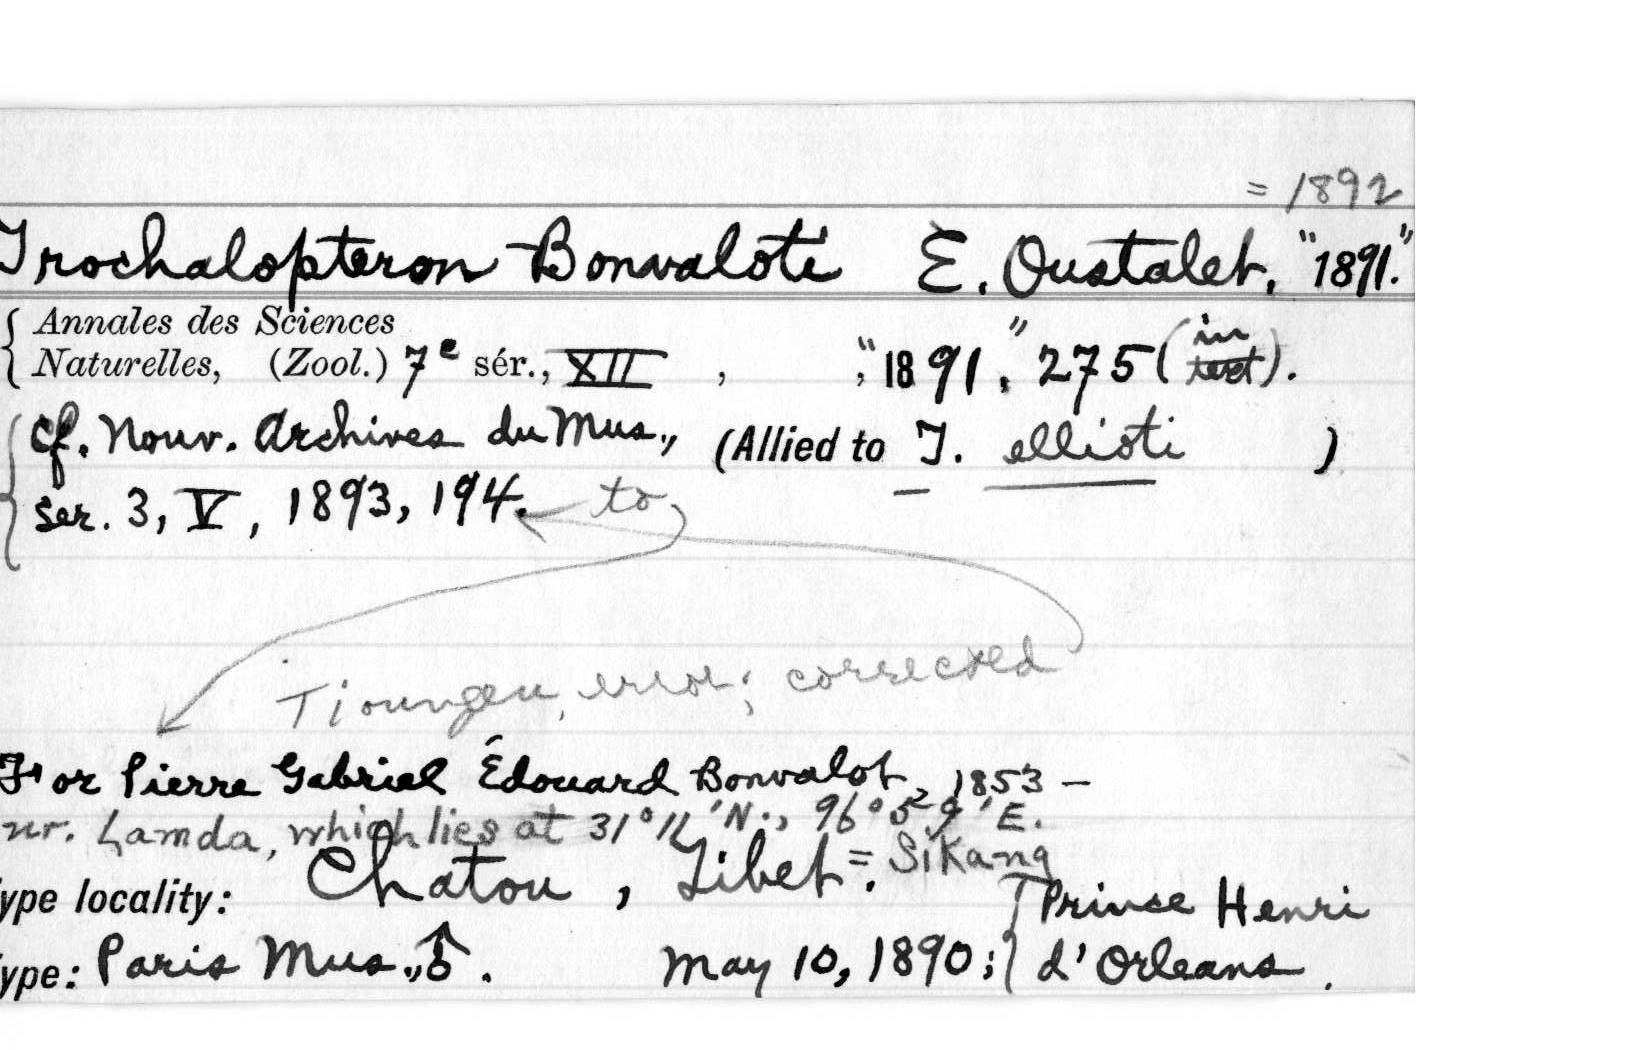 = 1892
Trochalopteron Bonvaloti E. Oustalet, "1891."
Annales des Sciences
Naturelles, (Zool.) 7e sér., XII , , "1891," 275 (in text).
Cf. Nouv. Archives du Mus., (Allied to T. ellioti )
ser. 3, V, 1893, 194. to
Tioungeu, error; corrected
For Pierre Gabriel Édouard Bonvalot, 1853 –
nr. Lamda, which lies at 31° 11' N., 96° 59' E.
ype locality: Chatou, Tibet. = Sikang
ype: Paris Mus., ♂. May 10, 1890; Prince Henri
d'Orleans.